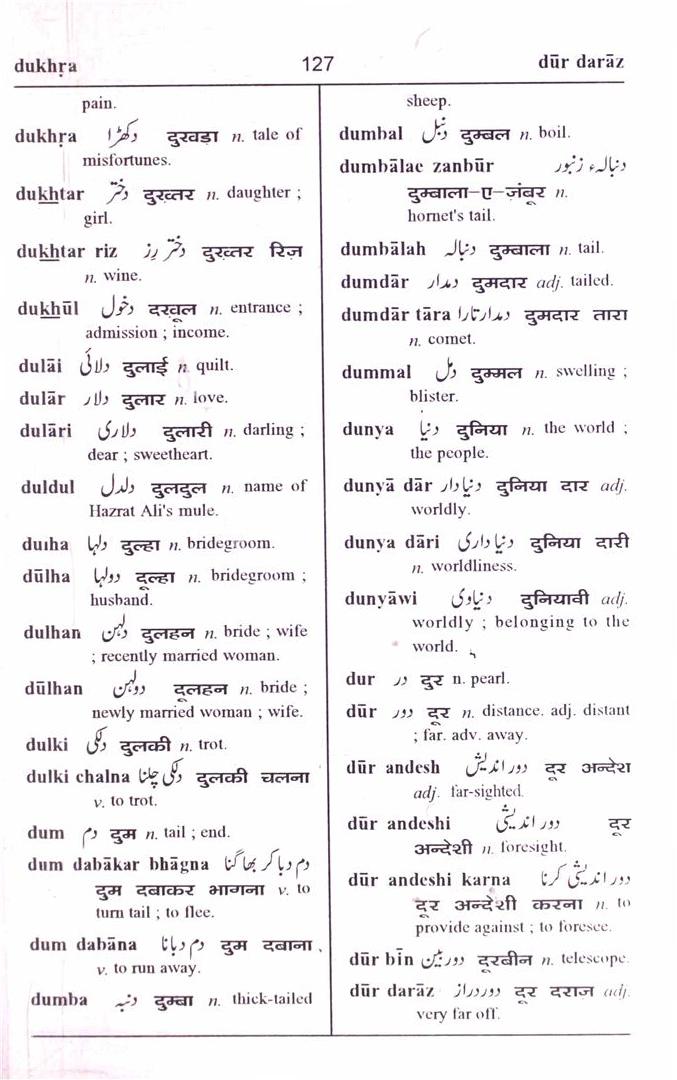 dukhṛa 127 dūr darāz
pain.
dukhṛa دکھڑا दुखड़ा n. tale of
misfortunes.
dukhtar دختر दुख्तर n. daughter ;
girl.
dukhtar riz دختر رز दुख्तर रिज़
n. wine.
dukhūl دخول दखूल n. entrance ;
admission ; income.
dulāi دلائی दुलाई n. quilt.
dulār دلار दुलार n. love.
dulāri دلاری दुलारी n. darling ;
dear ; sweetheart.
duldul دلدل दुलदुल n. name of
Hazrat Ali's mule.
dulha دلہا दुल्हा n. bridegroom.
dūlha دولہا दूल्हा n. bridegroom ;
husband.
dulhan دلہن दुलहन n. bride ; wife
; recently married woman.
dūlhan دولہن दूलहन n. bride ;
newly married woman ; wife.
dulki دلکی दुलकी n. trot.
dulki chalna دلکی چلنا दुलकी चलना
v. to trot.
dum دم दुम n. tail ; end.
dum dabākar bhāgna دم دبا کر بھاگنا
दुम दबाकर भागना v. to
turn tail ; to flee.
dum dabāna دم دبانا दुम दबाना
v. to run away.
dumba دنبہ दुम्बा n. thick-tailed
sheep.
dumbal دنبل दुम्बल n. boil.
dumbālae zanbūr دنبالہء زنبور
दुम्बाला-ए-ज़ंबूर n.
hornet's tail.
dumbālah دنبالہ दुम्बाला n. tail.
dumdār دمدار दुमदार adj. tailed.
dumdār tāra دمدار تارا दुमदार तारा
n. comet.
dummal دمل दुम्मल n. swelling ;
blister.
dunya دنیا दुनिया n. the world ;
the people.
dunyā dār دنیا دار दुनिया दार adj.
worldly.
dunya dāri دنیا داری दुनिया दारी
n. worldliness.
dunyāwi دنیاوی दुनियावी adj.
worldly ; belonging to the
world.
dur در दुर n. pearl.
dūr دور दूर n. distance. adj. distant
; far. adv. away.
dūr andesh دور اندیش दूर अन्देश
adj. far-sighted.
dūr andeshi دور اندیشی दूर
अन्देशी n. foresight.
dūr andeshi karna دور اندیشی کرنا
दूर अन्देशी करना n. to
provide against ; to foresee.
dūr bīn دور بین दूरबीन n. telescope.
dūr darāz دور دراز दूर दराज adj.
very far off.